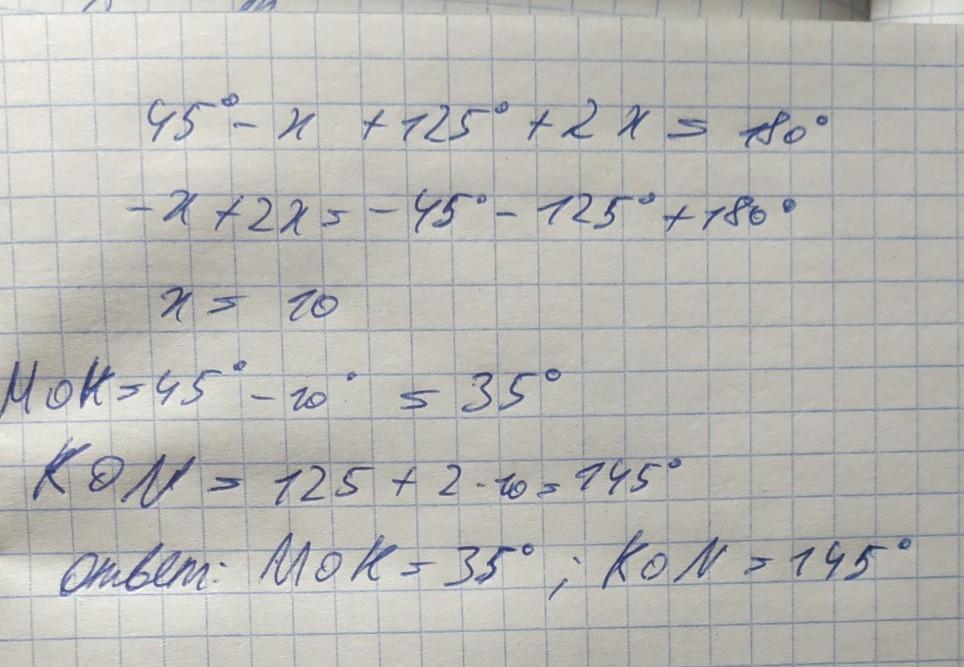 45° - x + 125° + 2x = 180°
-x + 2x = -45° - 125° + 180°
x = 10
МОК = 45° - 10° = 35°
KON = 125 + 2·10 = 145°
ответ: МОК = 35°; KON = 145°